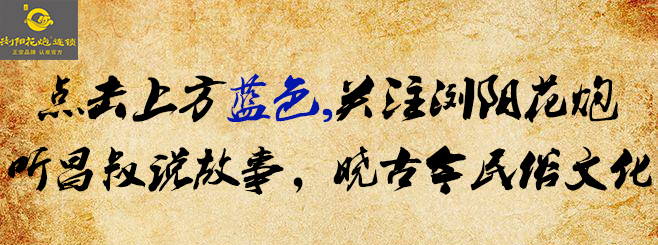 浏阳花炮连锁
正宗品牌 认准官方
点击上方蓝色,关注浏阳花炮
听昌叔说故事，晓古今民俗文化